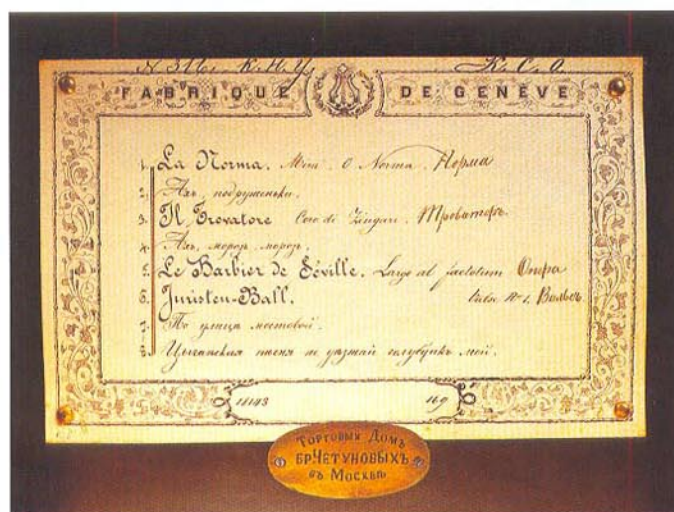 FABRIQUE DE GENÈVE
1. La Norma. O Norma. Норма
2. Ахъ, подруженьки.
3. Il Trovatore Coro di Zingari. Троваторъ.
4. Ахъ, морозъ, морозъ.
5. Le Barbier de Séville. Largo al factotum Опера
6. Juristen-Ball. Valse № 1. Вальсъ.
7. По улицѣ мостовой.
8. Цыганская пѣсня не уѣзжай голубчикъ мой.
11143 169
ТОРГОВЫЙ ДОМЪ
БР ЧЕТУНОВЫХЪ
ВЪ МОСКВѢ